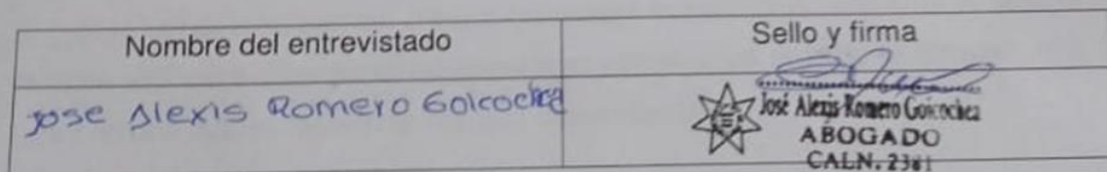 Nombre del entrevistado
Sello y firma
Jose Alexis Romero Goicochea
José Alexis Romero Goicochea
ABOGADO
CALN. 2381